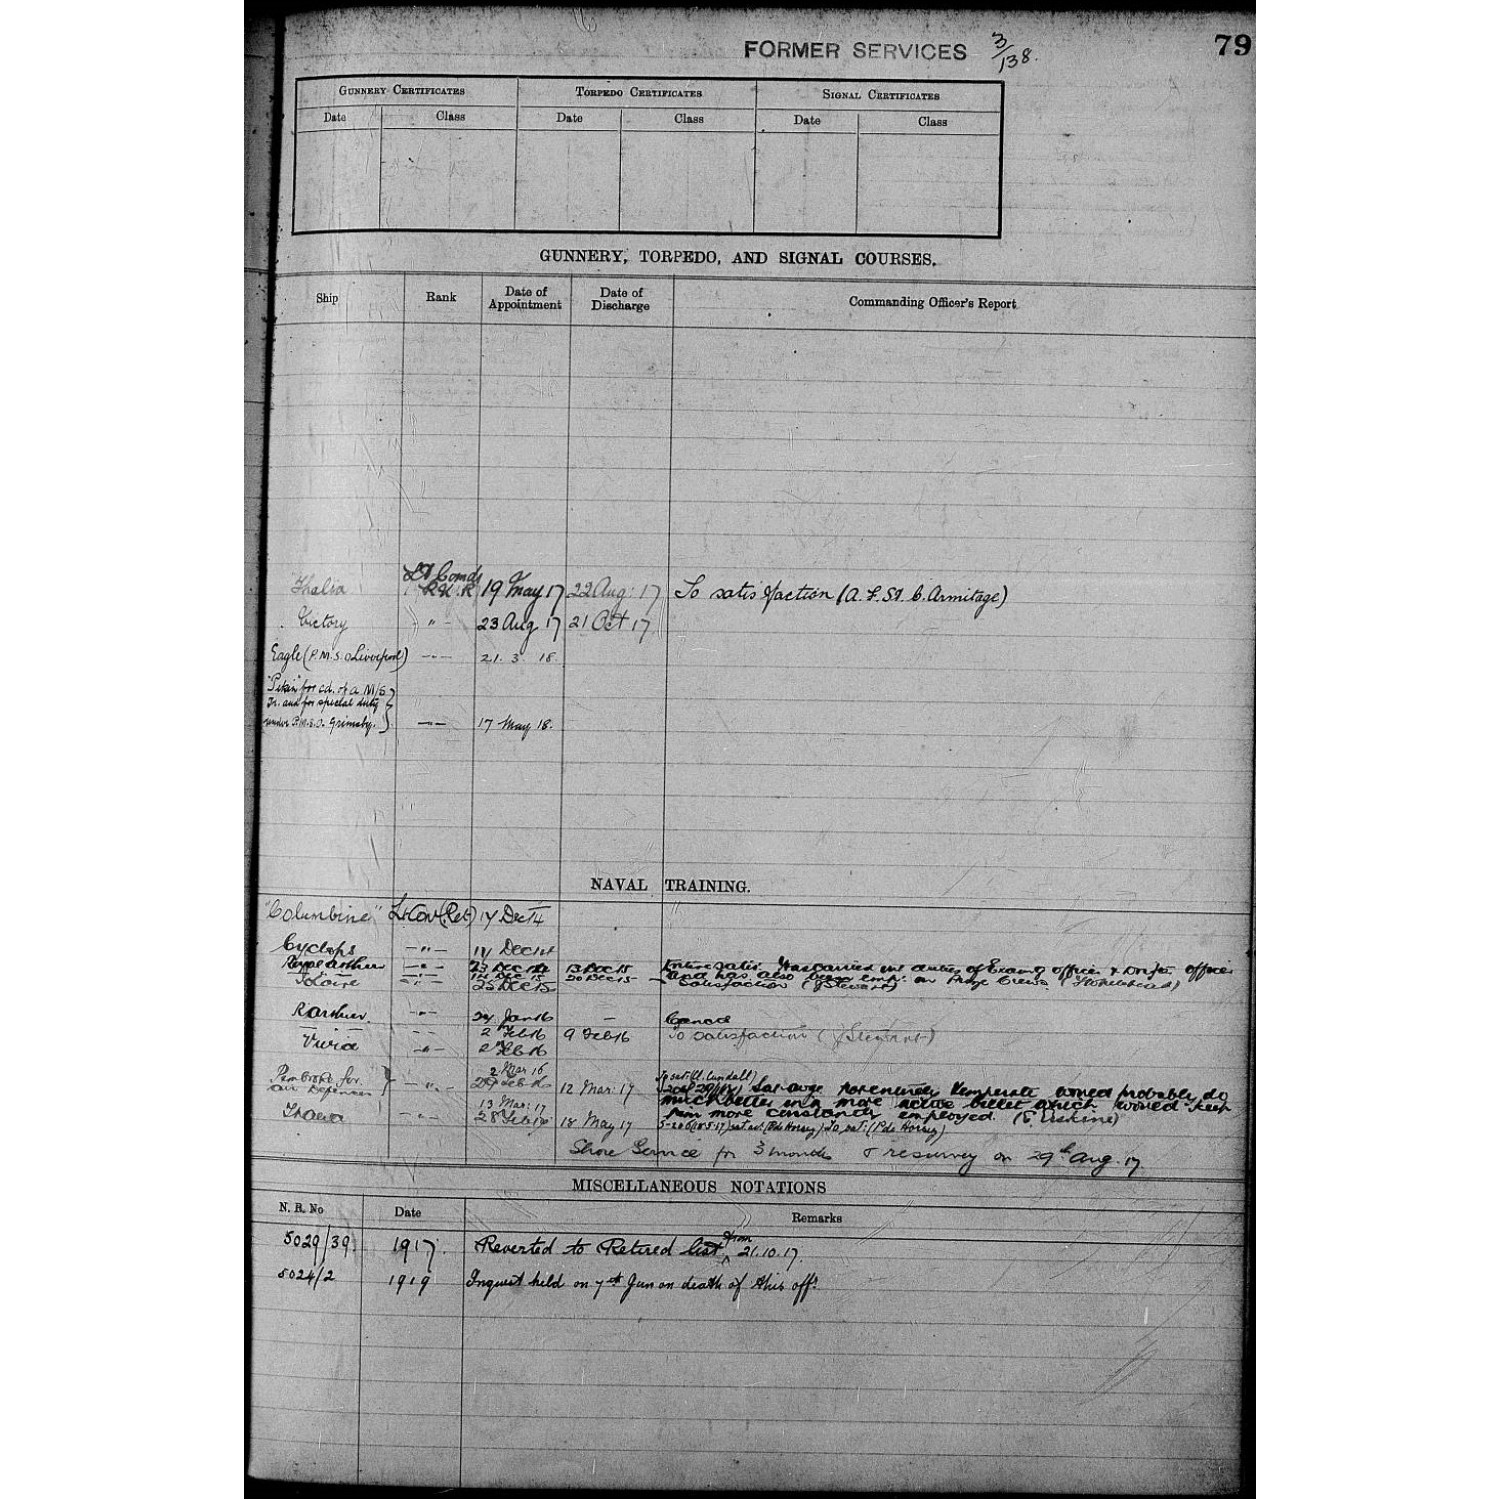 FORMER SERVICES 3/138. 79
GUNNERY CERTIFICATES TORPEDO CERTIFICATES SIGNAL CERTIFICATES
Date Class Date Class Date Class
GUNNERY, TORPEDO, AND SIGNAL COURSES.
Ship Rank Date of Appointment Date of Discharge Commanding Officer's Report
Thalia Lt Comdr R.N.R 19 May 17 22 Aug: 17 To satisfaction (A. F. St. C. Armitage)
Victory " 23 Aug 17 21 Oct 17
Eagle (P.M.S.O Liverpool) — " — 21. 3 18.
"Pekin" for cd. of a M/S
Tr. and for special duty
under P.M.S.O. Grimsby. — " — 17 May 18.
NAVAL TRAINING.
"Columbine" 14 Dec 14
Cyclops — " — 14 Dec 14
Royal Arthur — " — 23 Dec 14 13 Dec 15 Entire satis. Has carried out duties of Examg officer & officer
— " — 14 Dec 15 20 Dec 15 and has also been emp. on Prize Crews.
— " — 25 Dec 15 Satisfaction (J Stewart)
— " — 24 Jan 16 — Canced
— " — 2 Feb 16 9 Feb 16 To satisfaction (J Stewart)
— " — 2 Feb 16
2. Mar 16 To sat. (C. Cundall)
Pembroke for
Air Defences — " — 12 Mar: 17 Temperate would probably do
much better in a more active billet which would keep
13 Mar: 17 him more constantly employed. (E. Erskine)
Thalia — " — 28 Feb 17 18 May 17
Shore Service for 3 months & resurvey on 29th Aug. 17
MISCELLANEOUS NOTATIONS
N. R. No Date Remarks
5029/39. 1917. Reverted to Retired list from 21.10.17.
5024/2 1919 Inquest held on 7th Jan on death of this offr.